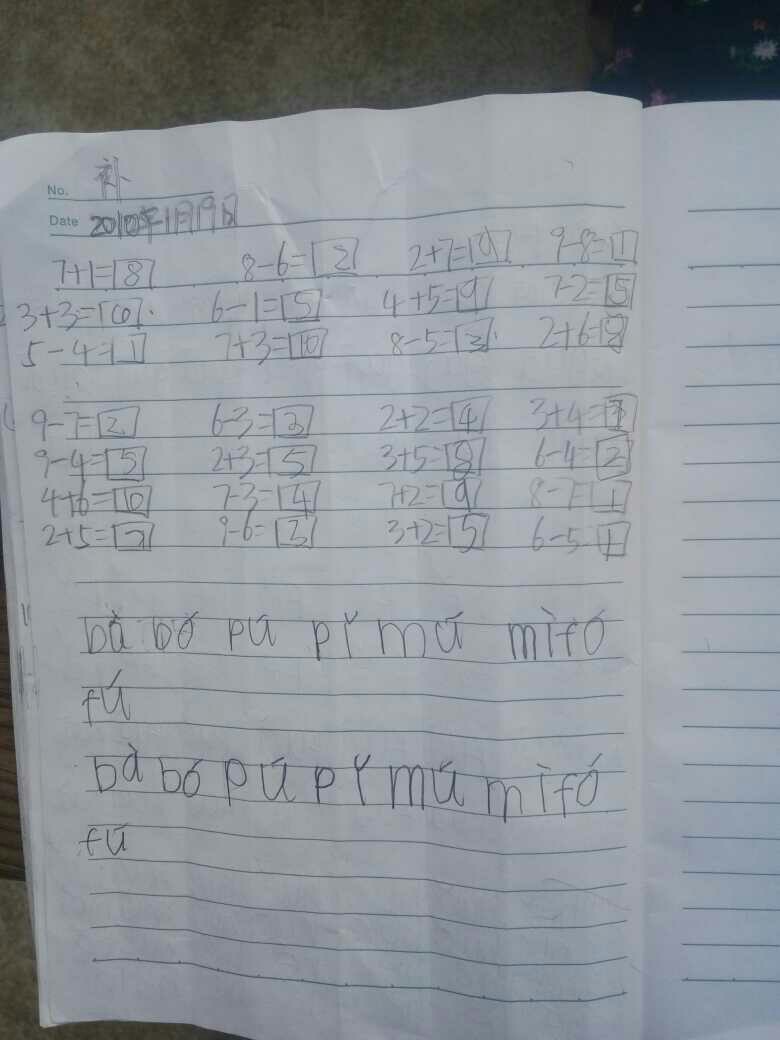 No. 补
Date 2010年1月19日
7+1=8 8-6=2 2+7=9 9-8=1
3+3=6 6-1=5 4+5=9 7-2=5
5-4=1 7+3=10 8-5=3 2+6=8
9-7=2 6-3=3 2+2=4 3+4=7
9-4=5 2+3=5 3+5=8 6-4=2
4+6=10 7-3=4 7+2=9 8-7=1
2+5=7 9-6=3 3+2=5 6-5=1
bà bó pú pǐ mú mì fó
fú
bà bó pú pǐ mú mì fó
fú